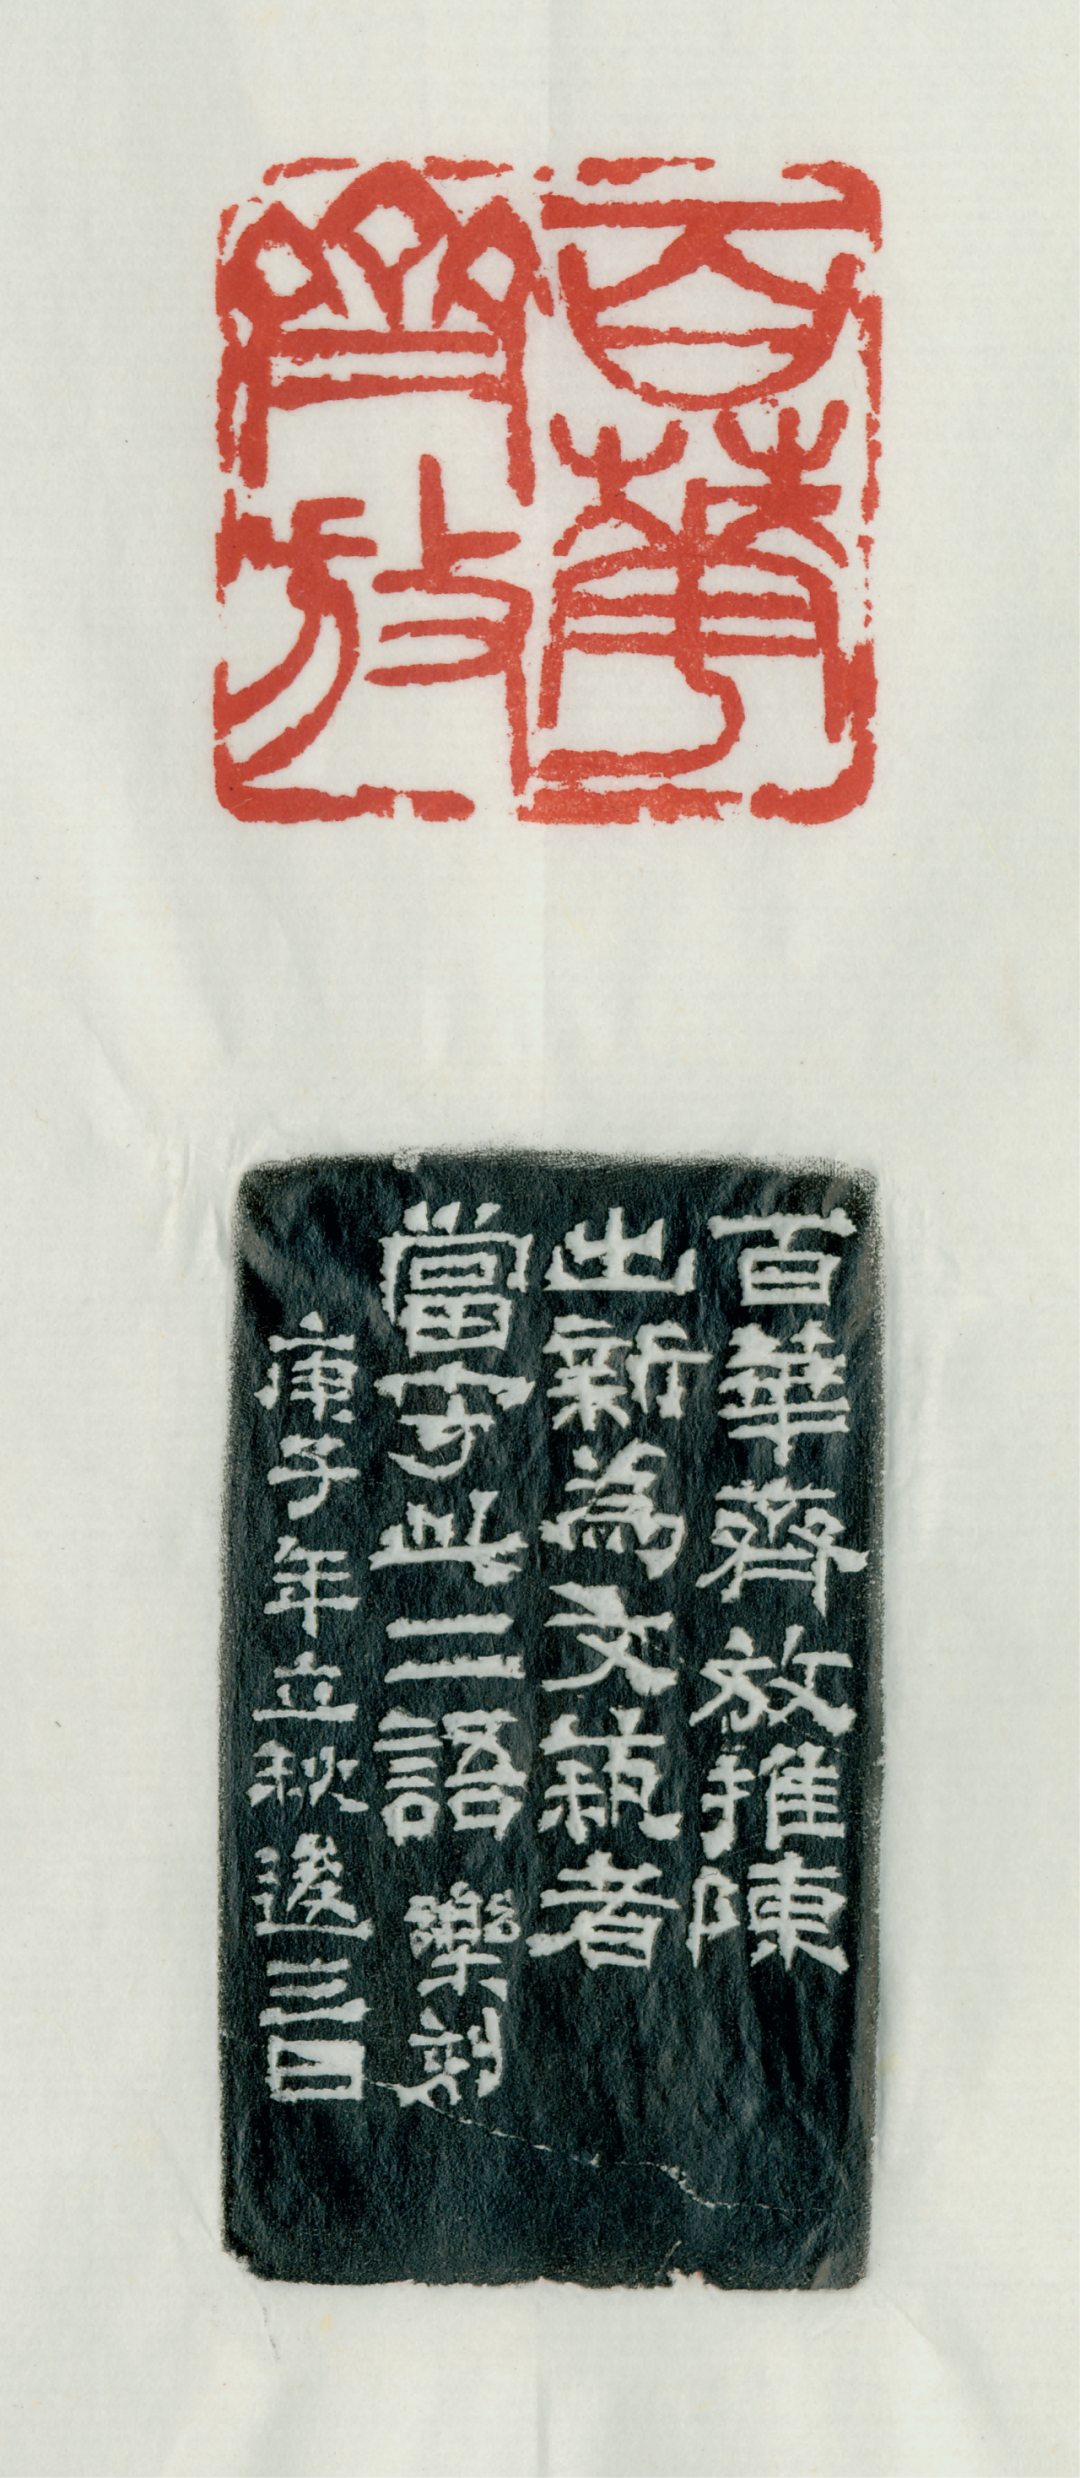 百華
齊放
百華齊放推陳
出新為文藝者
當守此二語 樂刻
庚子年立秋後三日